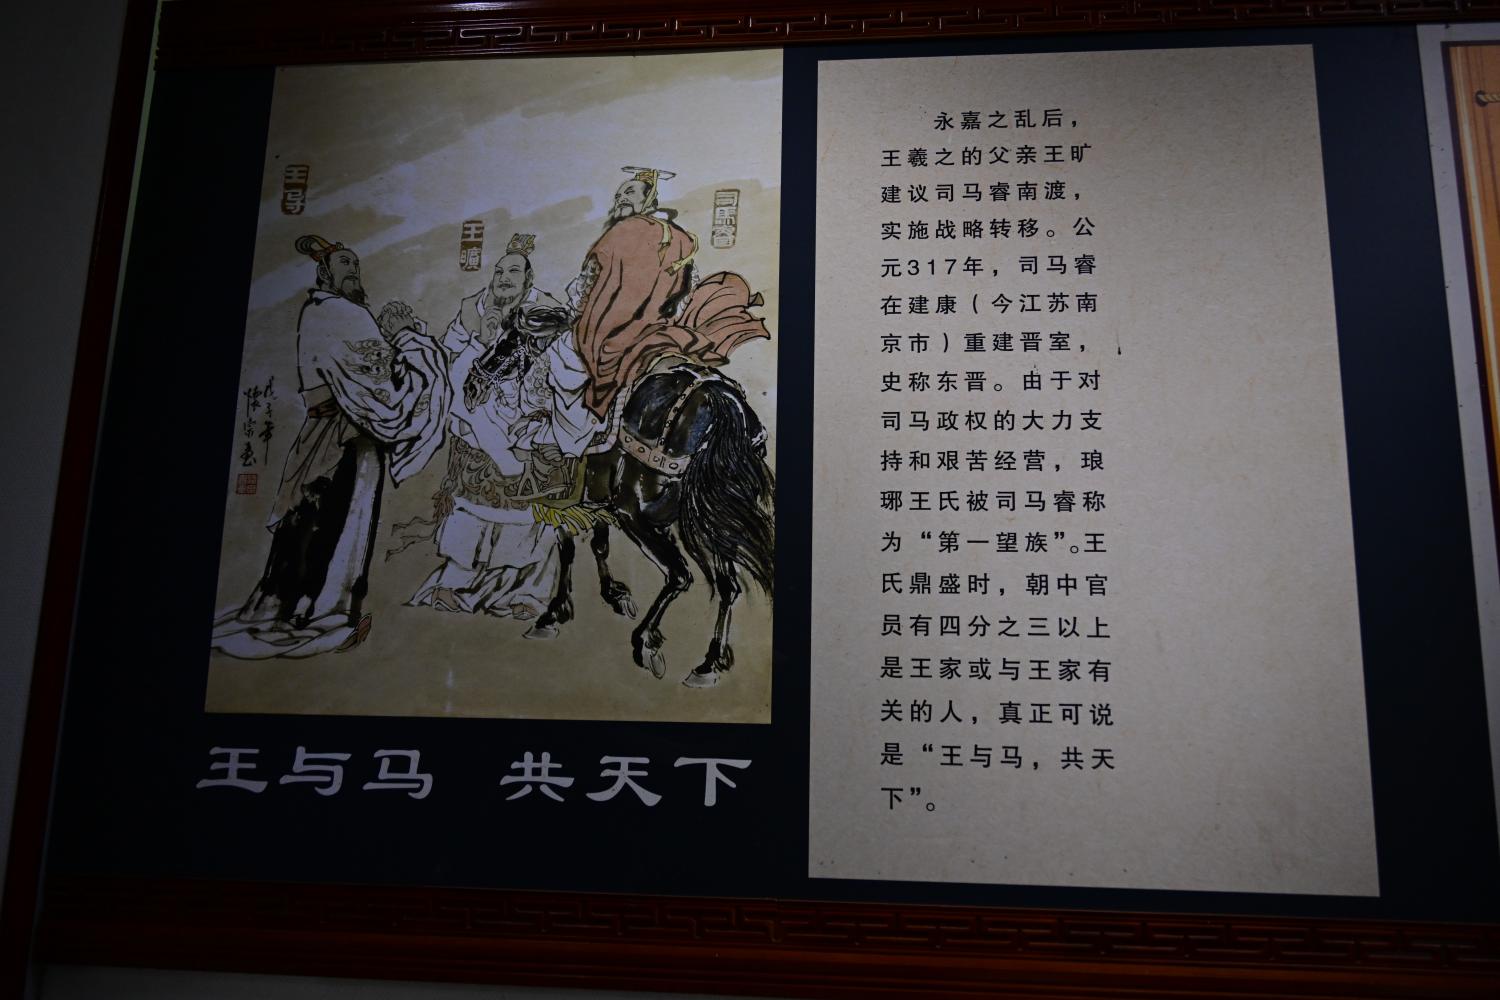 王导
王曠
司馬睿
戊子年
懷宗畫
王与马 共天下
永嘉之乱后，
王羲之的父亲王旷
建议司马睿南渡，
实施战略转移。公
元317年，司马睿
在建康（今江苏南
京市）重建晋室，
史称东晋。由于对
司马政权的大力支
持和艰苦经营，琅
琊王氏被司马睿称
为“第一望族”。王
氏鼎盛时，朝中官
员有四分之三以上
是王家或与王家有
关的人，真正可说
是“王与马，共天
下”。